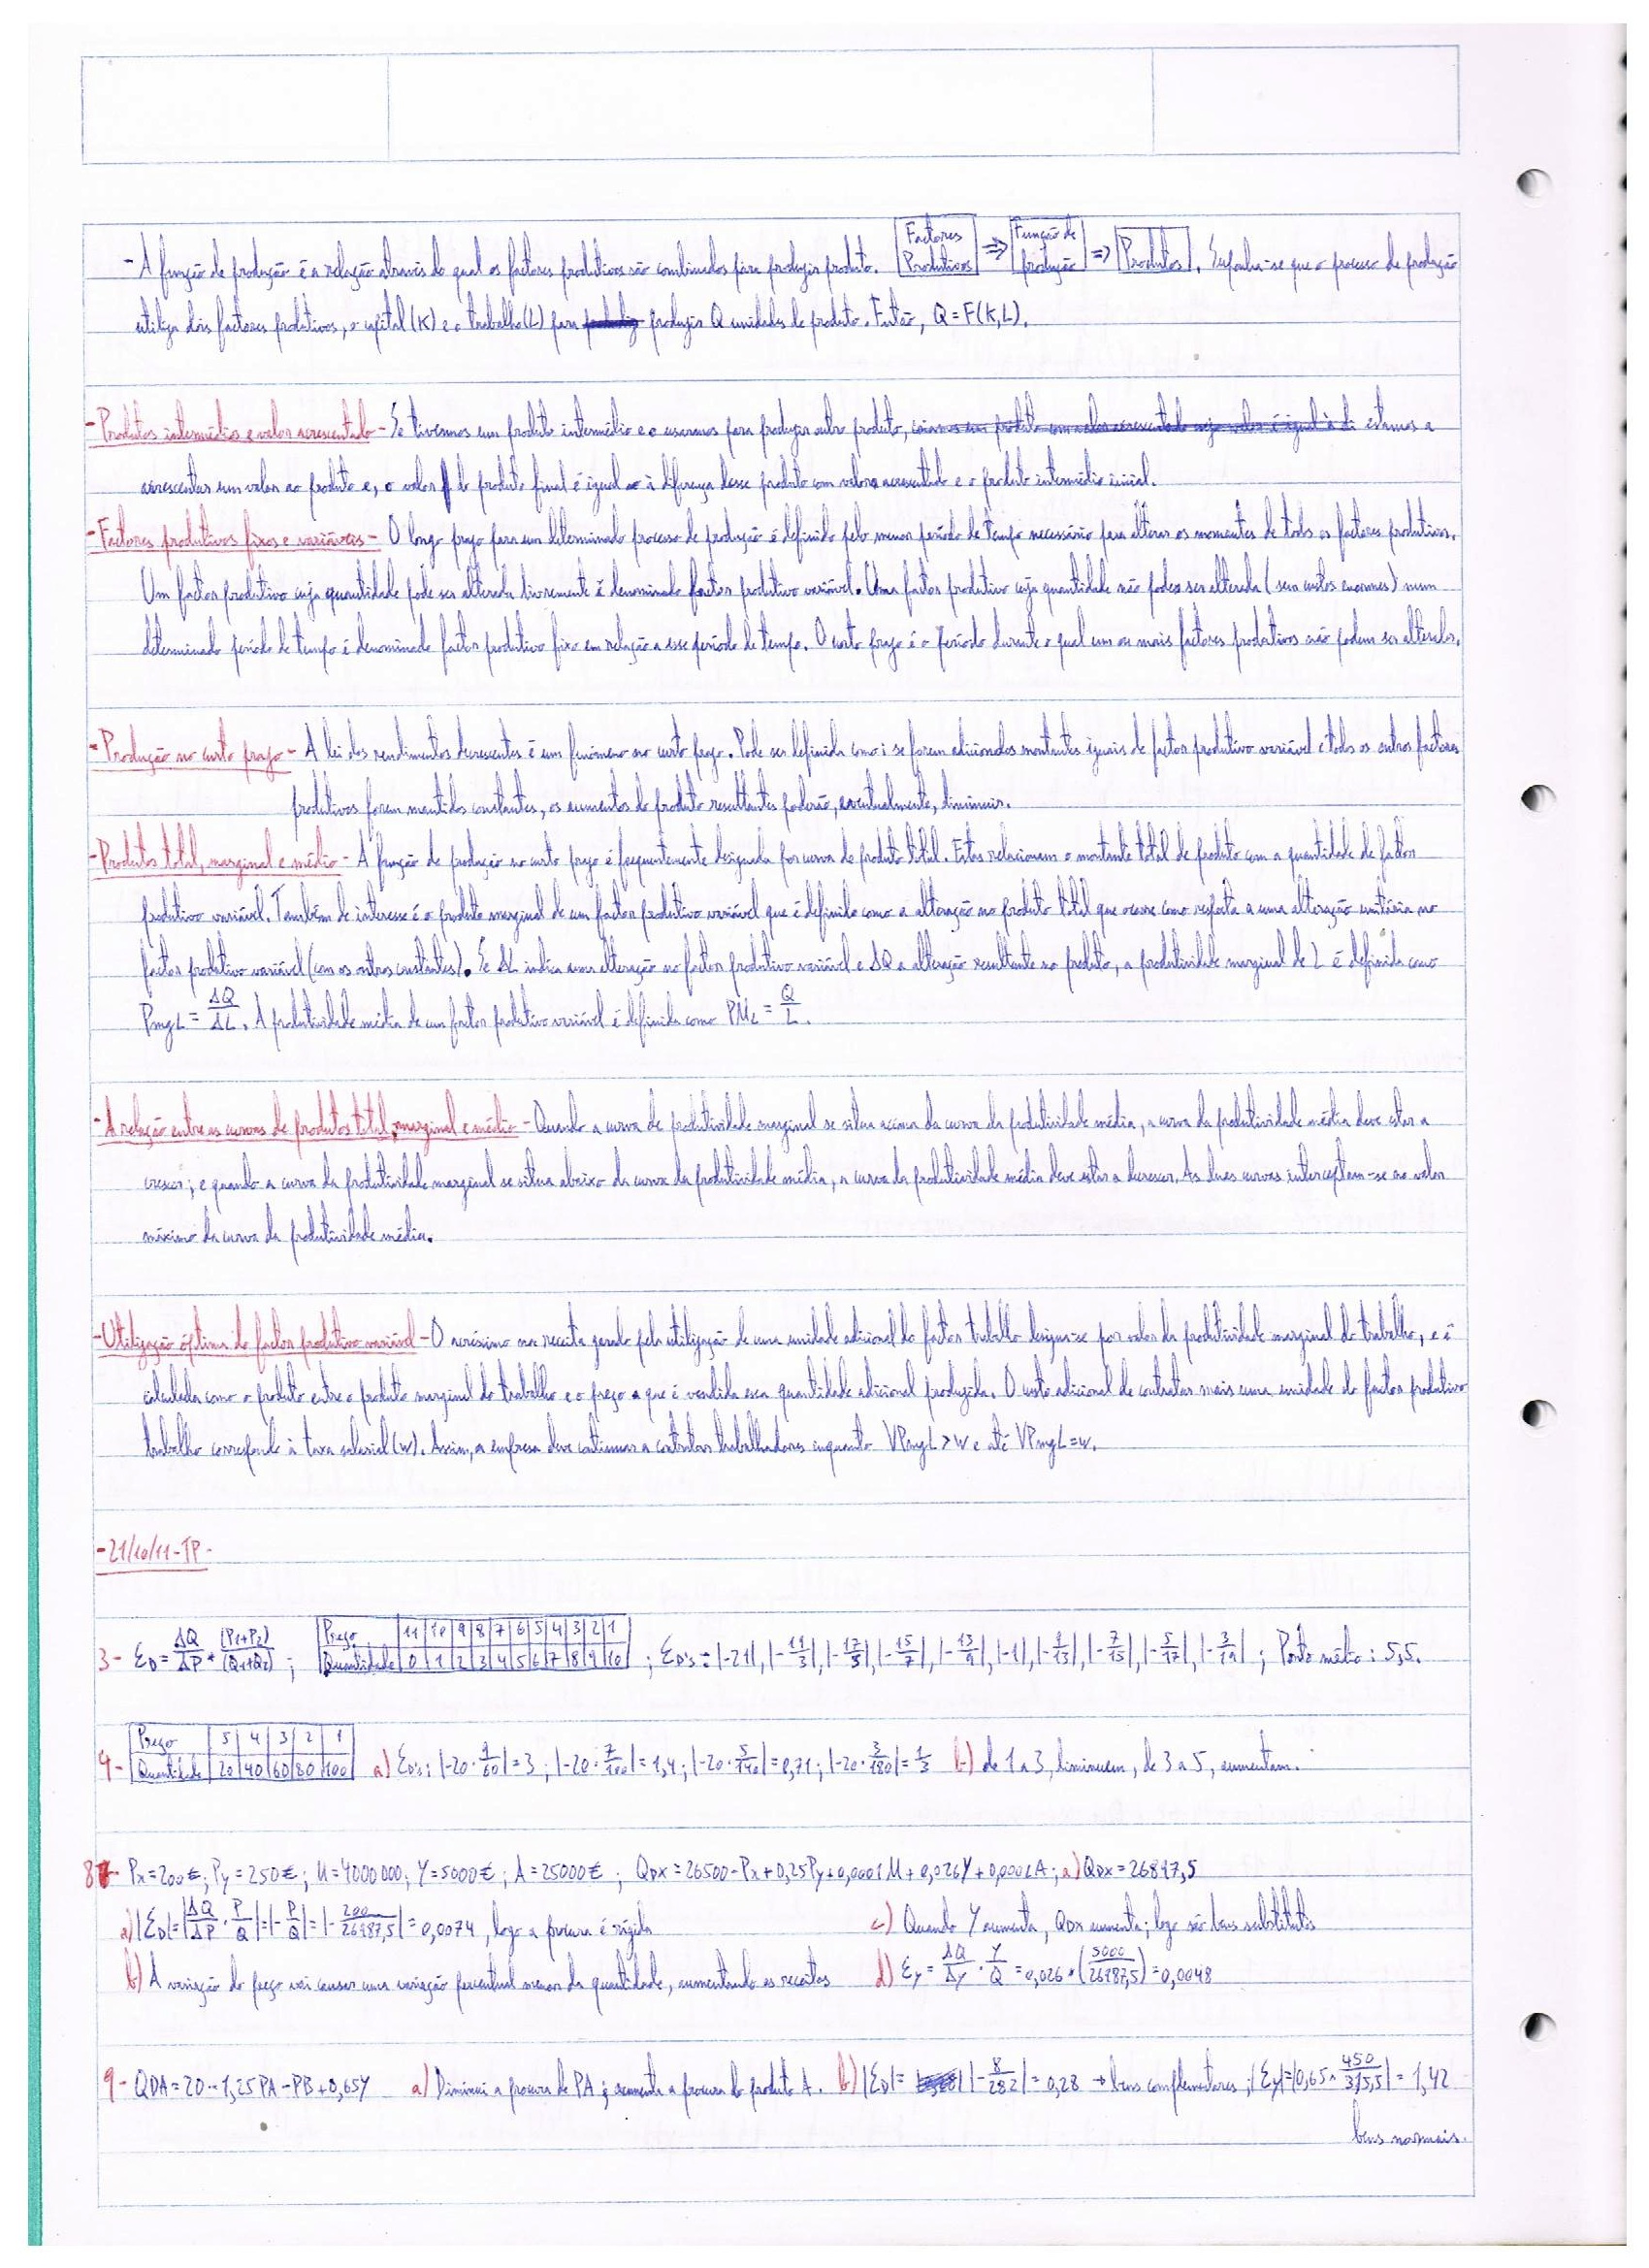 - A função de produção é a relação através do qual os factores produtivos são combinados para produzir produto. Factores Produtivos => Função de produção => Produtos. Suponha-se que o processo de produção
utiliza dois factores produtivos, o capital (K) e o trabalho (L) para produzir Q unidades de produto. Então, Q = F(K,L).
- Produtos intermédios e valor acrescentado - Se tivermos um produto intermédio e o usarmos para produzir outro produto, estamos a
acrescentar um valor ao produto e, o valor do produto final é igual à diferença desse produto com valor acrescentado e o produto intermédio inicial.
- Factores produtivos fixos e variáveis - O longo prazo para um determinado processo de produção é definido pelo menor período de tempo necessário para alterar os momentes de todos os factores produtivos.
Um factor produtivo cuja quantidade pode ser alterada livremente é denominado factor produtivo variável. Uma factor produtivo cuja quantidade não pode ser alterada (sem custos enormes) num
determinado período de tempo é denominado factor produtivo fixo em relação a esse período de tempo. O curto prazo é o período durante o qual um ou mais factores produtivos não podem ser alterados.
- Produção no curto prazo - A lei dos rendimentos decrescentes é um fenómeno no curto prazo. Pode ser definida como: se forem adicionados montantes iguais de factor produtivo variável e todos os outros factores
produtivos forem mantidos constantes, os aumentos do produto resultantes poderão, eventualmente, diminuir.
- Produtos total, marginal e médio - A função de produção no curto prazo é frequentemente designada por curva do produto total. Estas relacionam o montante total de produto com a quantidade de factor
produtivo variável. Também de interesse é o produto marginal de um factor produtivo variável que é definido como a alteração no produto total que ocorre como resposta a uma alteração unitária no
factor produtivo variável (com os outros constantes). Se ΔL indica uma alteração no factor produtivo variável e ΔQ a alteração resultante no produto, a produtividade marginal de L é definida como
PmgL = ΔQ/ΔL. A produtividade média de um factor produtivo variável é definida como PML = Q/L.
- A relação entre as curvas de produtos total, marginal e médio - Quando a curva de produtividade marginal se situa acima da curva da produtividade média, a curva da produtividade média deve estar a
crescer; e quando a curva da produtividade marginal se situa abaixo da curva da produtividade média, a curva da produtividade média deve estar a decrescer. As duas curvas interceptam-se no valor
máximo da curva da produtividade média.
- Utilização óptima do factor produtivo variável - O acréscimo na receita gerado pela utilização de uma unidade adicional do factor trabalho designa-se por valor da produtividade marginal do trabalho, e é
calculada como o produto entre o produto marginal do trabalho e o preço a que é vendida essa quantidade adicional produzida. O custo adicional de contratar mais uma unidade do factor produtivo
trabalho corresponde à taxa salarial (w). Assim, a empresa deve continuar a contratar trabalhadores enquanto VPmgL > w e até VPmgL = w.
- 21/10/11 - TP -
3 - ED = ΔQ/ΔP * (P1+P2)/(Q1+Q2) ; Preço 11 10 9 8 7 6 5 4 3 2 1 Quantidade 0 1 2 3 4 5 6 7 8 9 10 ; ED's: |-21|, |-19/3|, |-17/5|, |-15/7|, |-13/9|, |-1|, |-9/13|, |-7/15|, |-5/17|, |-3/19| ; Ponto médio: 5,5.
4 - Preço 5 4 3 2 1 Quantidade 20 40 60 80 100 a) ED's: |-20·9/60| = 3 ; |-20·7/100| = 1,4 ; |-20·5/140| = 0,71 ; |-20·3/180| = 1/3 b) de 1 a 3, diminuem, de 3 a 5, aumentam.
8 - Px = 200€; Py = 250€; M = 4000000; Y = 5000€; A = 25000€ ; QDX = 26500 - Px + 0,25Py + 0,0001M + 0,026Y + 0,0002A; a) QDX = 26897,5
a) |ED| = |ΔQ/ΔP · P/Q| = |-P/Q| = |-200/26987,5| = 0,0074, logo a procura é rígida
c) Quando Y aumenta, QDX aumenta; logo são bens substitutos
b) A variação do preço vai causar uma variação percentual menor da quantidade, aumentando as receitas
d) EY = ΔQ/ΔY · Y/Q = 0,026 * (5000/26987,5) = 0,0048
9 - QDA = 20 - 1,25PA - PB + 0,65Y a) Diminui a procura de PA; aumenta a procura do produto A. b) |ED| = |-8/282| = 0,28 → bens complementares ; |EY| = |0,65 * 450/315,5| = 1,42
bens normais.